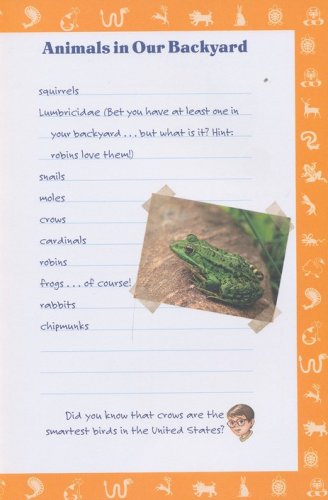 Animals in Our Backyard
squirrels
Lumbricidae (Bet you have at least one in
your backyard . . . but what is it? Hint:
robins love them!)
snails
moles
crows
cardinals
robins
frogs . . . of course!
rabbits
chipmunks
Did you know that crows are the
smartest birds in the United States?